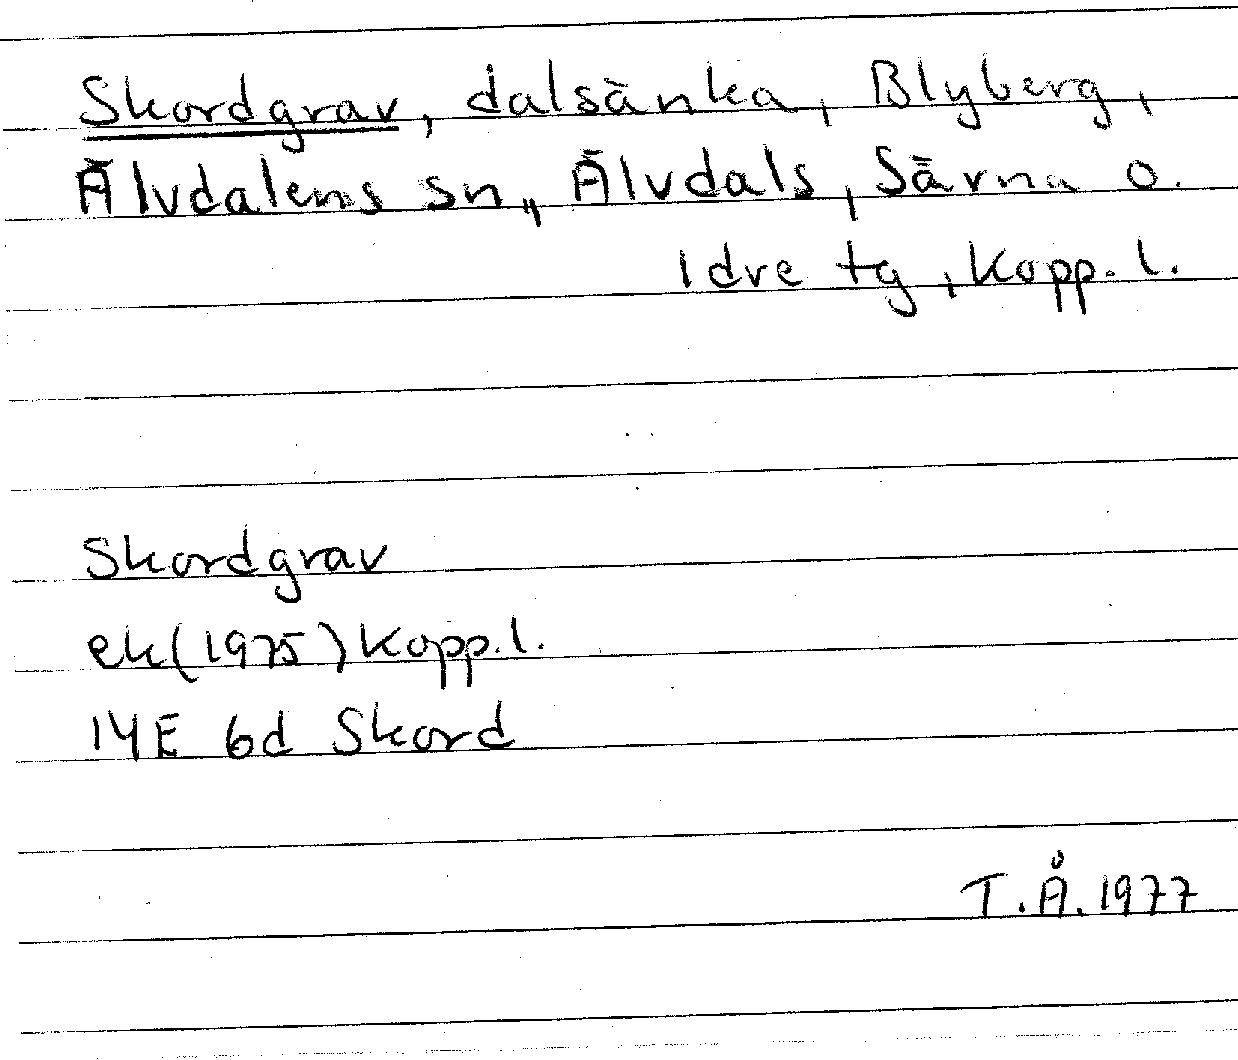 Skordgrav, dalsänka, Blyberg,
Älvdalens sn,, Älvdals, Särna o.
Idre tg, Kopp. l.
Skordgrav
ek (1975) Kopp. l.
14E 6d Skord
T.Å. 1977